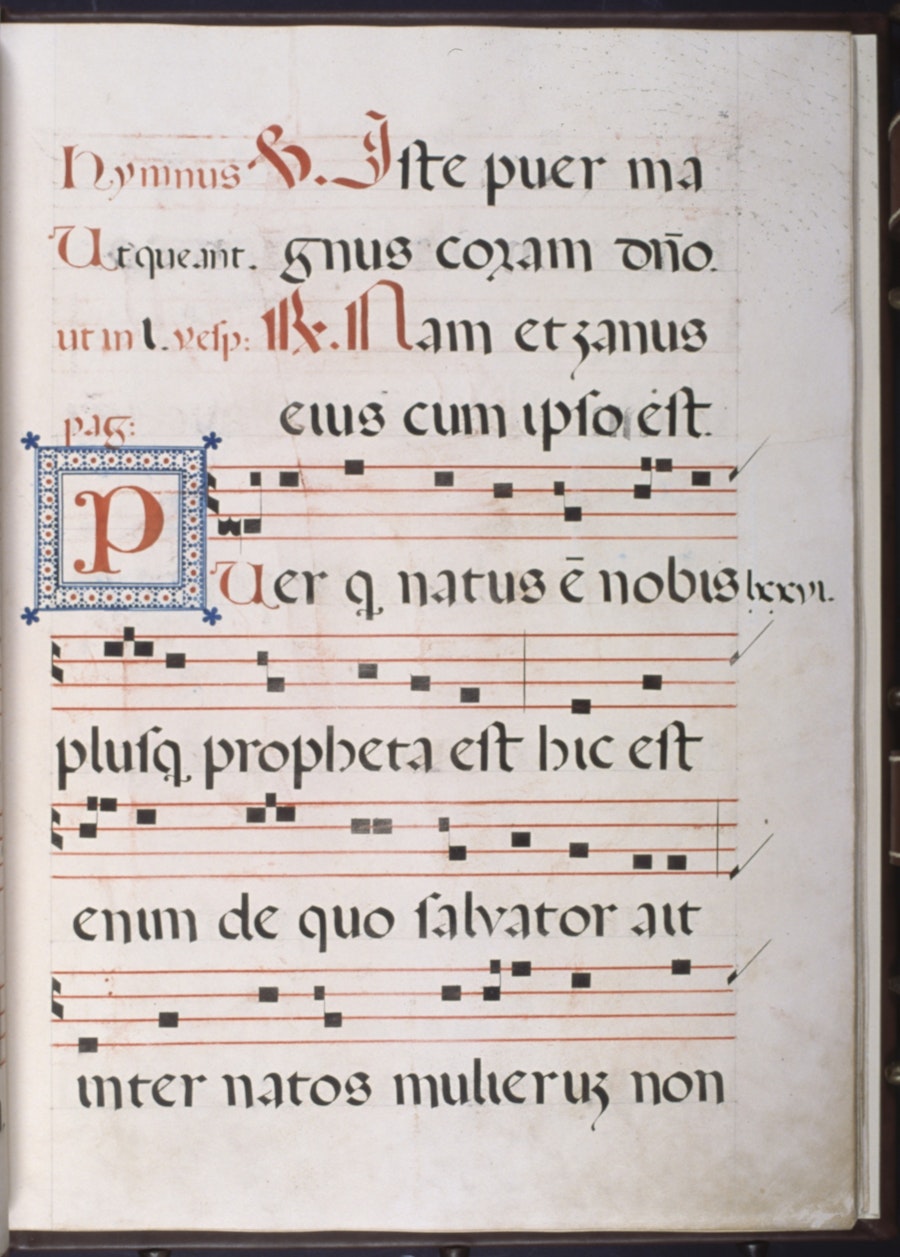 Hymnus ℣. Iste puer ma
Ut queant. gnus coram dño.
ut in l. vesp: ℟. Nam et zanus
pag: eius cum ipso est.
P
Uer q natus ē nobis lxxvi.
plusq propheta est hic est
enim de quo salvator ait
inter natos mulieruz non